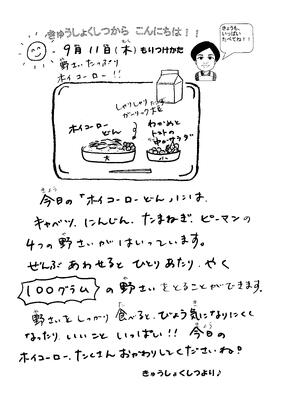 きゅうしょくしつから こんにちは!!
きょうも、
いっぱい
たべてね!!
9月11日(木) もりつけかた
野さい たっぷり
ホイコーロー!!
しゃりしゃり
ガーリック大豆
ホイコーロー
どん
わかめと
トマトの
中かサラダ
大
小
きょう
今日の「ホイコーローどん」には、
キャベツ、にんじん、たまねぎ、ピーマンの
4つの野さいがはいっています。
ぜんぶ あわせると ひとりあたり、やく
100グラム の野さいをとることができます。
野さいをしっかり食べると、びょう気になりにくく
なったり、いいこと いっぱい!! 今日の
ホイコーロー、たくさん おかわりしてくださいね♪
きゅうしょくしつより♪